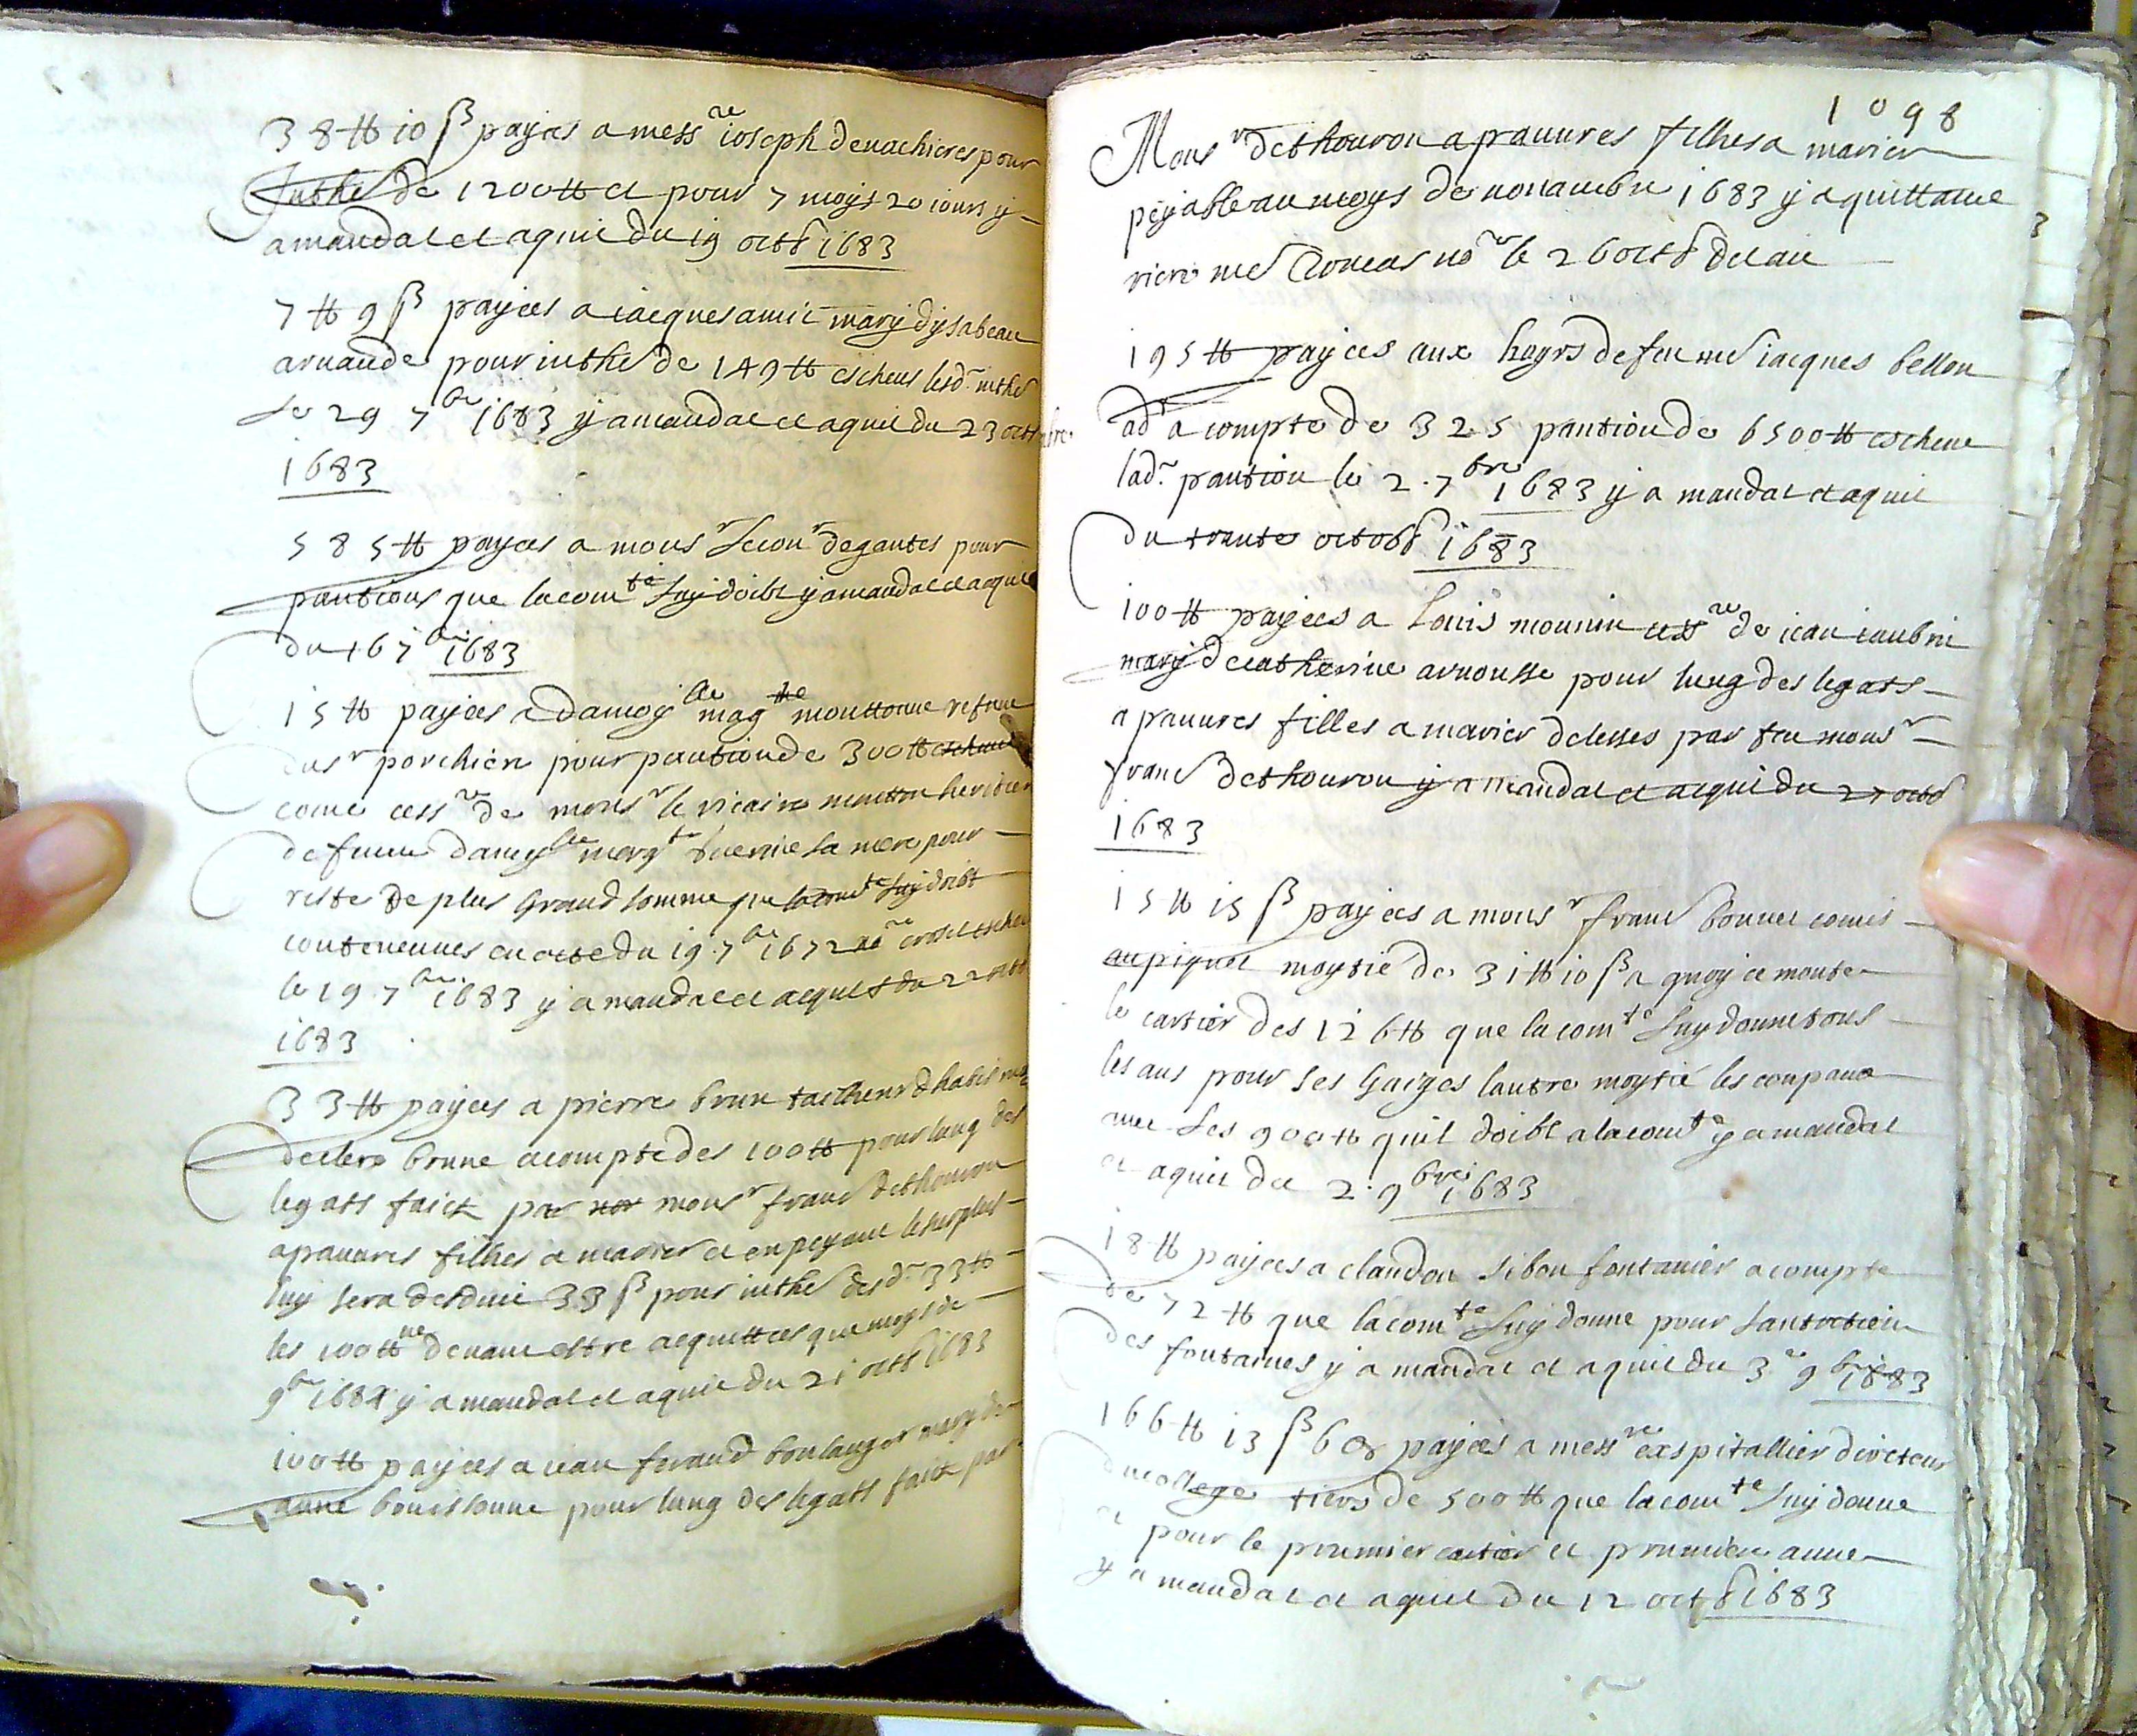 38 ₶ 10 ß payées a mess.re ioseph devachieres pour
Inthé de 1200 ₶ et pour 7 moys 20 iours y
a mandat et aquit du 19 octb 1683
7 ₶ 9 ß payées a iacques amic mary dysabeau
arnaude pour inthé de 149 ₶ escheus lesd. inthé
le 29 7bre 1683 y a mandat et aquit du 23 octobre
1683
585 ₶ payées a mons.r de gantes pour
pantions que la com.té luy doibt y a mandat et aquit
du 16 7bre 1683
15 ₶ payées a damoy.lle mag.ne mouttonne vefue
du s.r porchier pour pantion de 300 ₶
come cess.re de mons.r le vicaire moutton heritier
de feue damoy.lle marg.te sa mere pour
reste de plus Grand somme que la com.té luy doibt
conteneues en acte du 19 7bre 1672 no.re
le 19 7bre 1683 y a mandat et aquit du 22 octb
1683
33 ₶ payées a pierre brun tailheur dhabis mary
de clere brune a compte des 100 ₶ pour lung des
legats faict par mons.r franc dethouron
a pauures filhes a marier et en peyant le surplus
luy sera desduit 33 ß pour inthé desd. 33 ₶
les 100 ₶ ne devant estre acquittees que moys de
9bre 1684 y a mandat et aquit du 21 octb 1683
100 ₶ payées a iean feraud boulanger mary de
anne bouissonne pour lung des legats faict par
1098
Mons.r dethouron a pauures filhes a marier
peyable au moys de nouambre 1683 y a quittance
riere me no.re le 26 octb de lan
195 ₶ payées aux hoyrs de feu me iacques bellon
ad.t a compte de 325 pantion de 6500 ₶ escheue
lad. pantion le 2. 7bre 1683 y a mandat et aquit
du trante octob 1683
100 ₶ payées a Louis mounin cess.re de iean iaubin
mary de catherine arnousse pour lung des legats
a pauures filles a marier delesses par feu mons.r
franc dethouron y a mandat et acquit du 27 octob
1683
15 ₶ 15 ß payées a mons.r franc bonnet comis
au piquet moytié de 31 ₶ 10 ß a quoy ce monte
le cartier des 126 ₶ que la com.té luy donne tous
les ans pour ses Gaiges lautre moytié les compance
aux les 900 ₶ quil doibt a la com.té y a mandat
et aquit du 2. 9bre 1683
18 ₶ payées a claudou sibon fontanier a compte
de 72 ₶ que la com.té luy donne pour lantretien
des fontaines y a mandat et aquit du 3e 9bre 1683
166 ₶ 13 ß 6 d payées a mess.re espitallier directeur
du college tiers de 500 ₶ que la com.té luy donne
et pour le premier cartier et premiere annee
y a mandat et aquit du 12 octb 1683